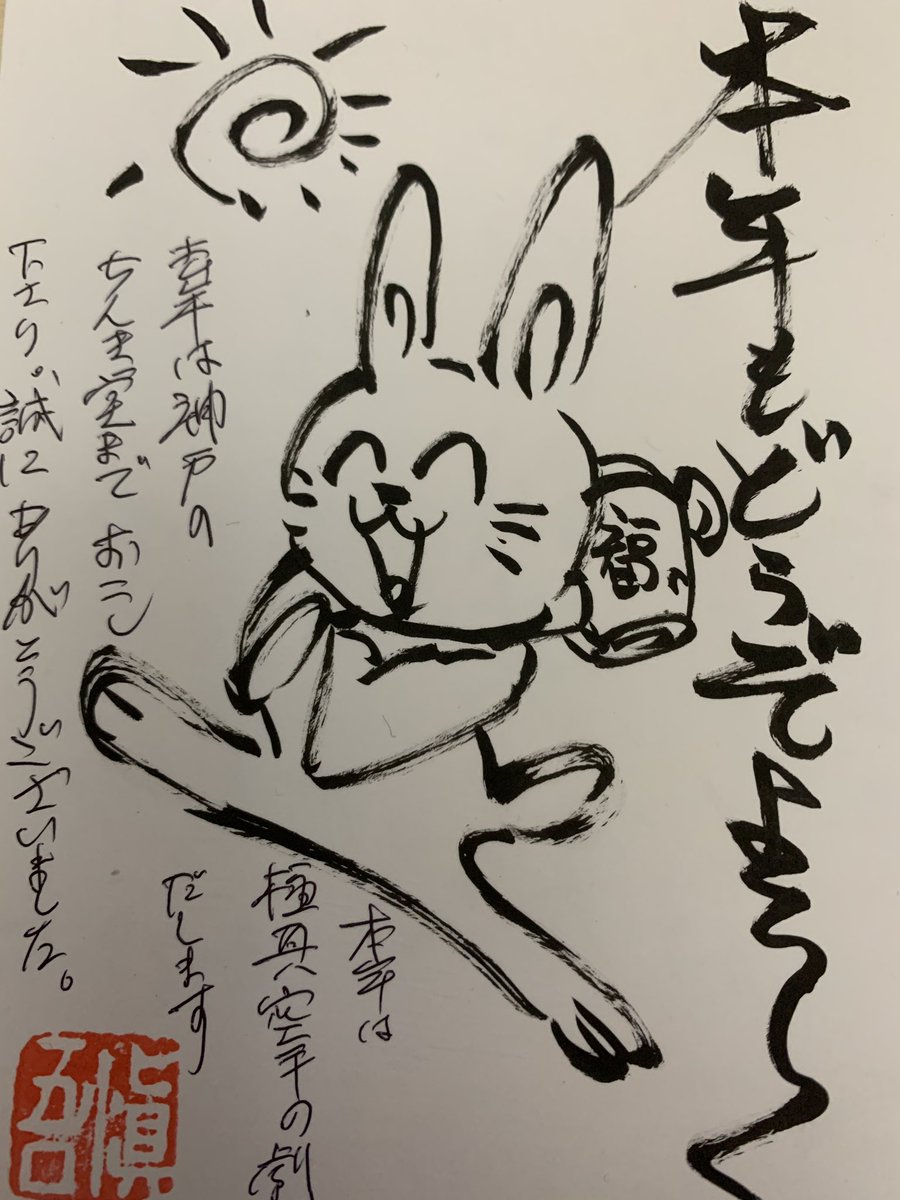 本年もどうぞよろしく
福
本年は
極真空手の劇
だします
去年は神戸の
ちんき堂までおこし
下さり。誠にありがとうございました。
愼吾